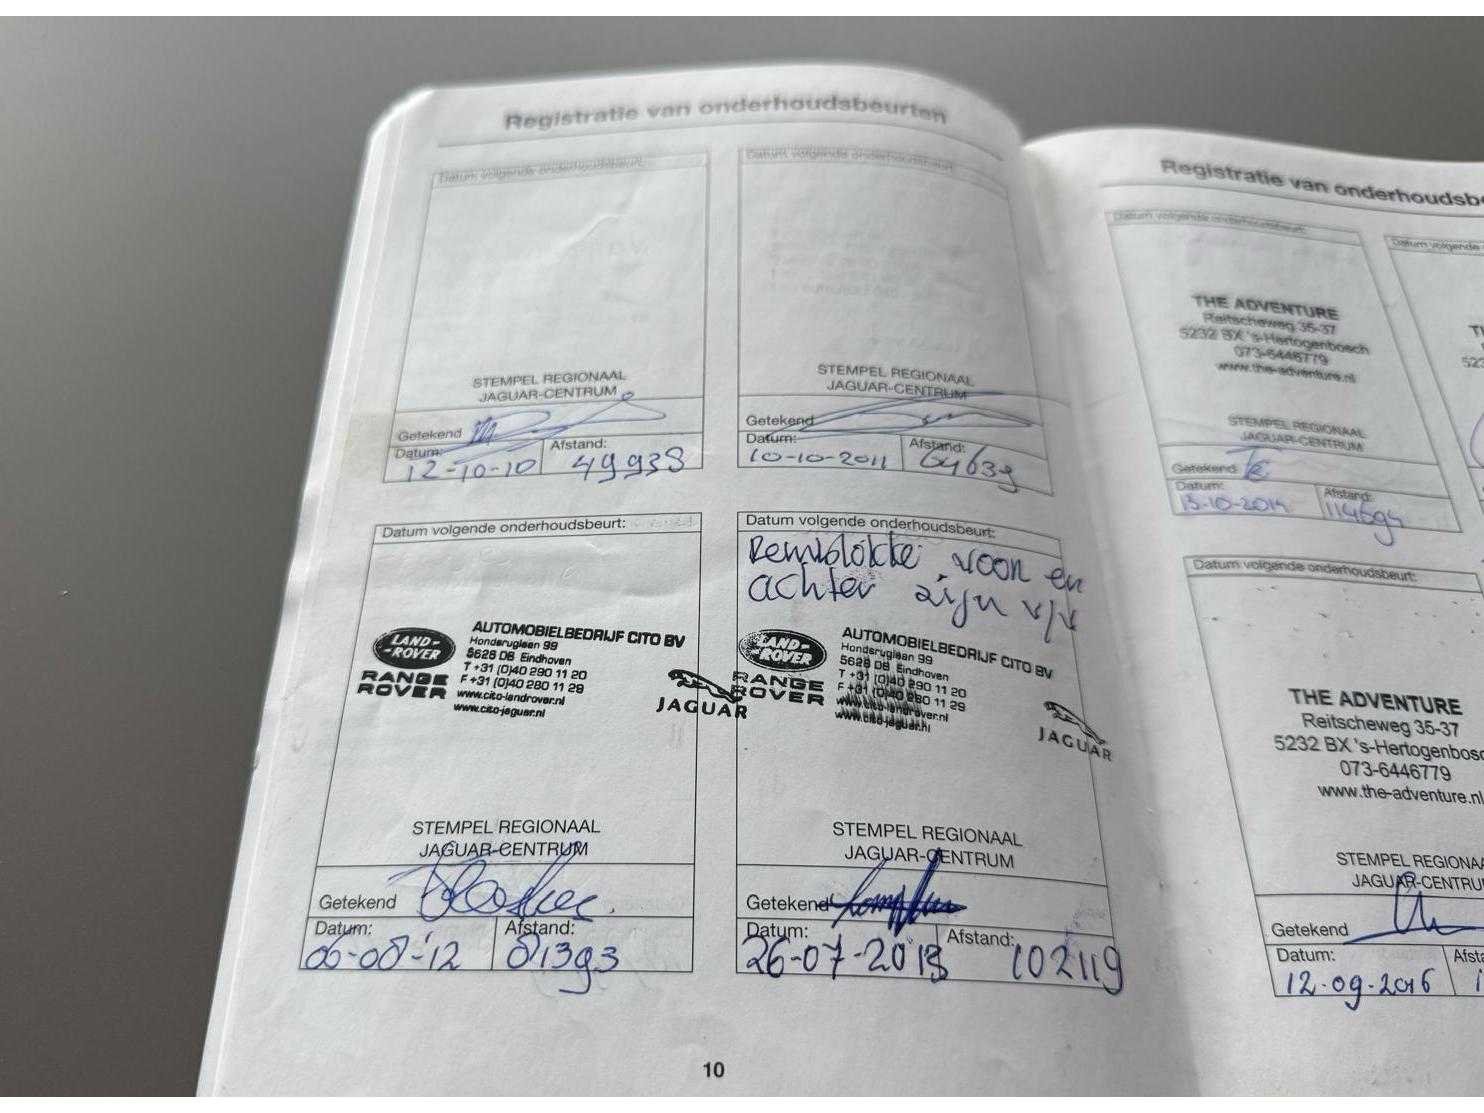 Registratie van onderhoudsbeurten
Datum volgende onderhoudsbeurt:
STEMPEL REGIONAAL
JAGUAR-CENTRUM
Getekend
Datum: Afstand:
12-10-10 49938
Datum volgende onderhoudsbeurt:
STEMPEL REGIONAAL
JAGUAR-CENTRUM
Getekend
Datum: Afstand:
10-10-2011 64639
Datum volgende onderhoudsbeurt:
LAND-
ROVER
RANGE
ROVER
AUTOMOBIELBEDRIJF CITO BV
Hondsruglaan 99
5628 DB Eindhoven
T +31 (0)40 290 11 20
F +31 (0)40 280 11 29
www.cito-landrover.nl
www.cito-jaguar.nl
JAGUAR
STEMPEL REGIONAAL
JAGUAR-CENTRUM
Getekend
Datum: Afstand:
06-08-'12 81393
Datum volgende onderhoudsbeurt:
Remblokke voor en
achter zijn v/v
LAND-
ROVER
RANGE
ROVER
AUTOMOBIELBEDRIJF CITO BV
Hondsruglaan 99
5628 DB Eindhoven
T +31 (0)40 290 11 20
F +31 (0)40 280 11 29
www.cito-landrover.nl
www.cito-jaguar.nl
JAGUAR
STEMPEL REGIONAAL
JAGUAR-CENTRUM
Getekend
Datum: Afstand:
26-07-2013 102119
10
Registratie van onderhoudsbe
Datum volgende onderhoudsbeurt:
THE ADVENTURE
Reitscheweg 35-37
5232 BX 's-Hertogenbosch
073-6446779
www.the-adventure.nl
STEMPEL REGIONAAL
JAGUAR-CENTRUM
Getekend
Datum: Afstand:
13-10-2014 114694
Datum volgende
523
Datum volgende onderhoudsbeurt:
THE ADVENTURE
Reitscheweg 35-37
5232 BX 's-Hertogenbosc
073-6446779
www.the-adventure.nl
STEMPEL REGIONAA
JAGUAR-CENTRU
Getekend
Datum: Afsta
12-09-2016 1